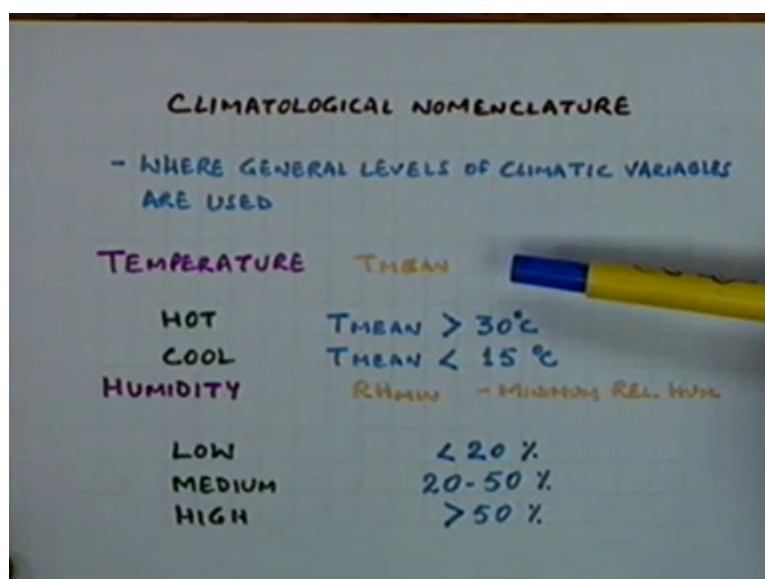 CLIMATOLOGICAL NOMENCLATURE
- WHERE GENERAL LEVELS OF CLIMATIC VARIABLES
ARE USED
TEMPERATURE TMEAN
HOT TMEAN > 30°C
COOL TMEAN < 15 °C
HUMIDITY RHMIN - MINIMUM REL. HUM.
LOW < 20 %
MEDIUM 20-50 %
HIGH > 50 %